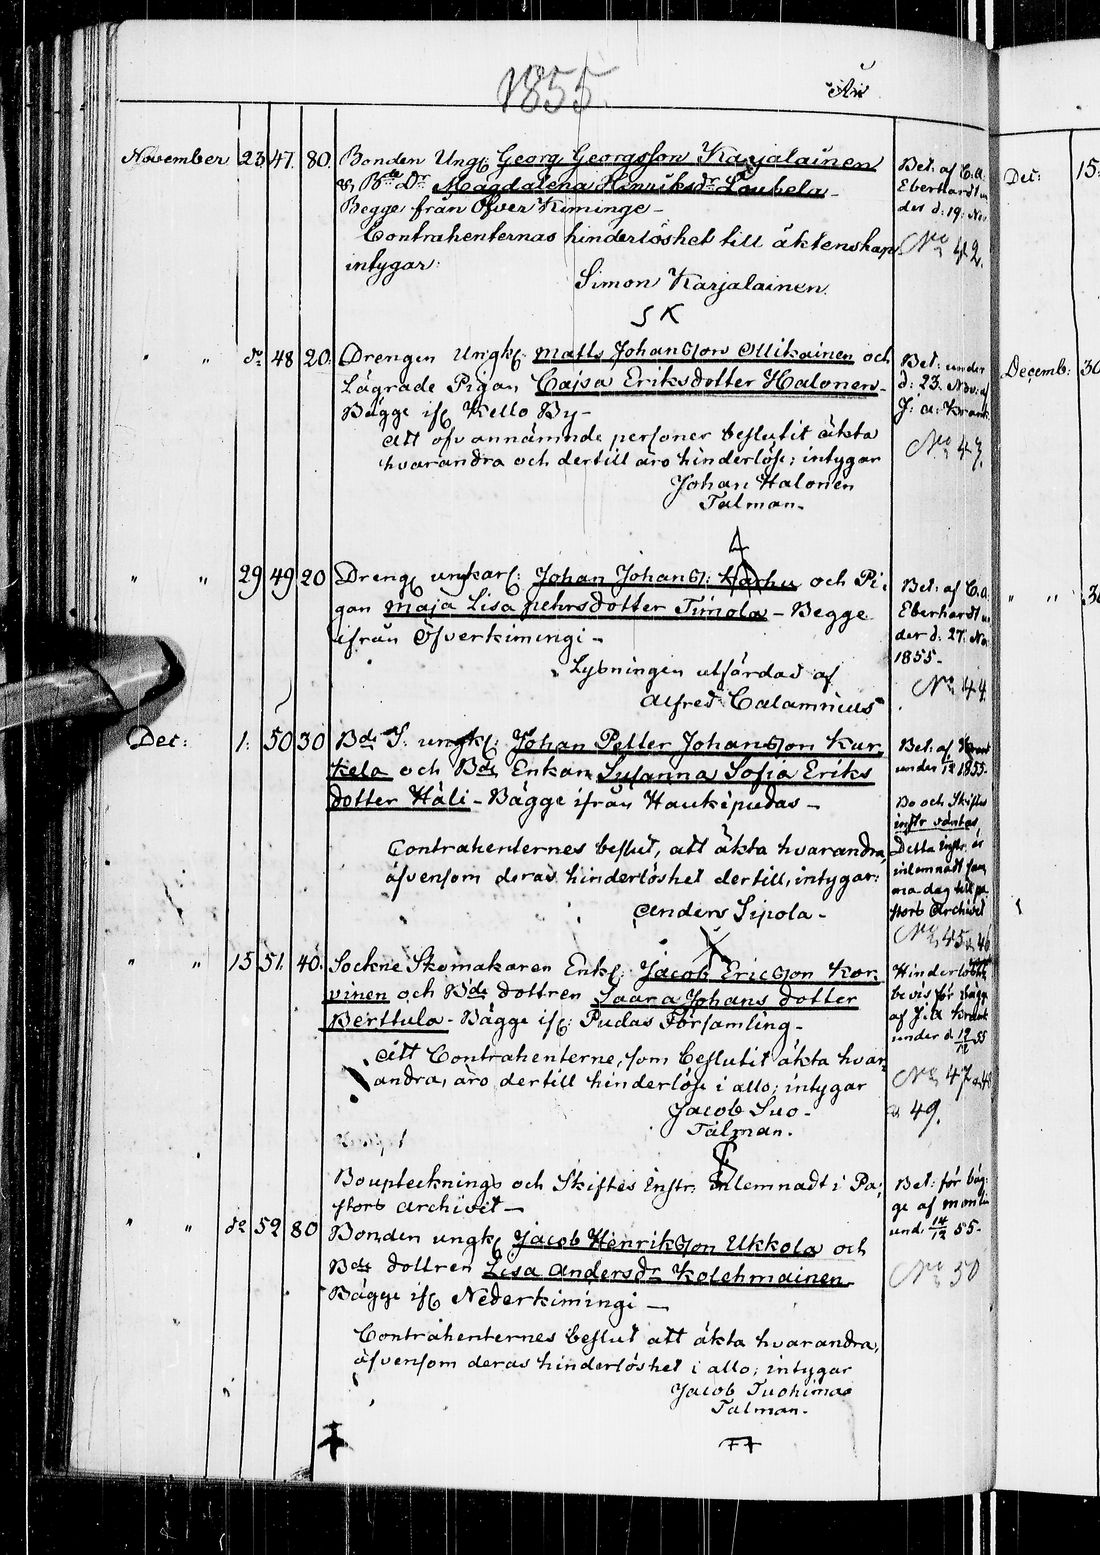 1855.
November 23 47. 80. Bonden Ungk: Georg Georgsson Karjalainen
& Bde Dr Magdalena Henriksdr Laukela –
Begge från Öfver Kiminge –
Contrahenternas hinderlöshet till äktenskap
intygar:
Simon Karjalainen.
S K
Bet: af C. A.
Eberhardt un
der d: 19: Nov
No 42.
" " do 48 20. Drengen Ungk: Matts Johansson Ollikainen och
Lägrade Pigan Cajsa Eriksdotter Halonen –
Bägge ifr Kello By –
Att ofvannämnde personer beslutit äkta
hvarandra och dertill äro hinderlöse; intygar
Johan Halonen
Talman –
Bet: under
d: 23. Nov: af
J: A: Krank
No 43.
" " 29 49 20 Dreng ungkarl: Johan Johanss: Karhu och Pi-
gan Maja Lisa Pehrsdotter Timola – Begge
ifrån Öfverkimingi –
Lysningen utfärdad af
Alfred Calamnius
Bet: af C. A.
Eberhardt un
der d: 27: No
1855 –
No 44.
Dec: 1: 50 30 Bde S: ungk: Johan Petter Johansson Kur-
kela och Bde Enkan Susanna Sofia Eriks
dotter Häli – Bägge ifrån Haukipudas –
Contrahenternes beslut, att äkta hvarandra,
äfvensom deras hinderlöshet dertill, intygar:
Anders Sipola –
Bet: af Krank
under 1/12 1855.
Bo och Skiftes
instr väntas,
Detta Instr. är
inlemnadt sam
ma dag till pa
stors Archivet
No 45 & 46
" " 15 51. 40. Sockne Skomakaren Enkl: Jacob Ericsson Kor-
vinen och Bde dottren Saara Johans dotter
Berttula – Bägge ifr: Pudas Församling –
Att Contrahenterne, som beslutit äkta hvar-
andra, äro dertill hinderlöse i allo; intygar
Jacob Suo –
Talman.
Hinderlöshets
bevis för bägge
af J. A Krank
under d 12/12 55
No 47 & 48
& 49.
Boupteckning och Skiftes Instr. inlemnadt i Pa-
stors archivet –
" " do 52 80 Bonden ungk Jacob Henriksson Ukkola och
Bde dottren Lisa Andersdr Kolehmainen
Bägge ifr Nederkimingi –
Contrahenternes beslut att äkta hvarandra,
äfvensom deras hinderlöshet i allo; intygar
Jacob Tuohimaa
Talman –
Bet: för bäg-
ge af
und. 14/12 55 –
No 50
Dec: 15
Decemb: 30
" "